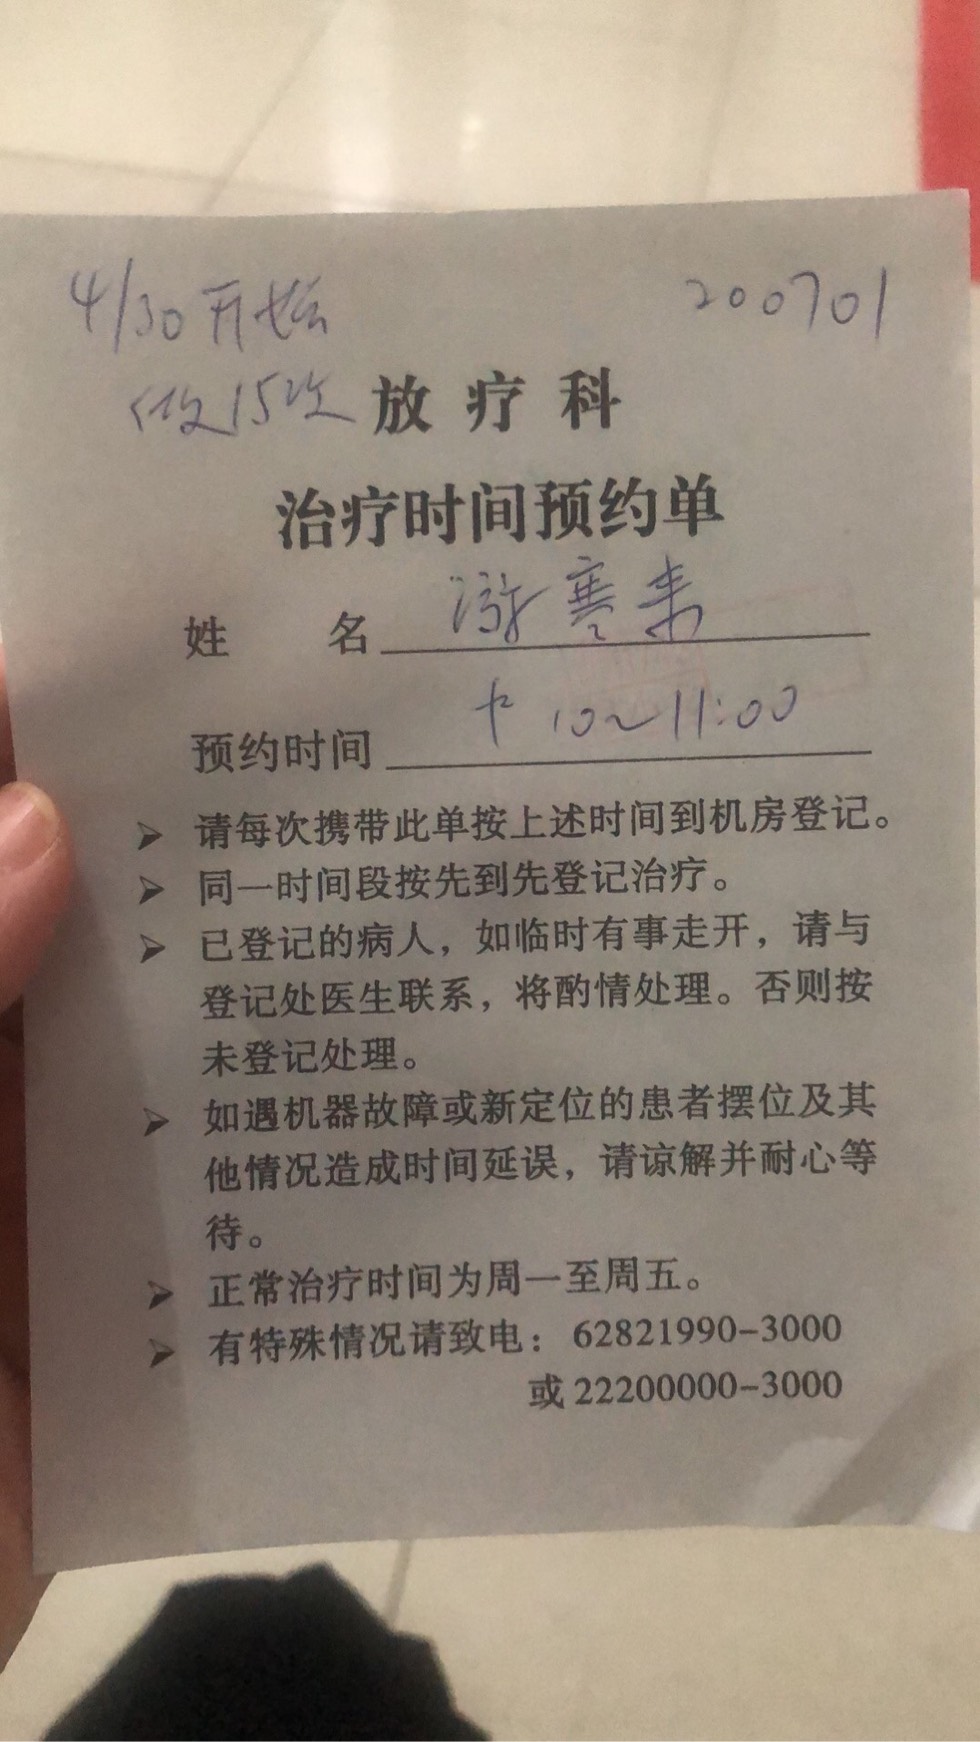 4/30开始
200701
做15次
放疗科
治疗时间预约单
姓 名 游寒来
预约时间 10~11:00
➢ 请每次携带此单按上述时间到机房登记。
➢ 同一时间段按先到先登记治疗。
➢ 已登记的病人，如临时有事走开，请与
登记处医生联系，将酌情处理。否则按
未登记处理。
➢ 如遇机器故障或新定位的患者摆位及其
他情况造成时间延误，请谅解并耐心等
待。
➢ 正常治疗时间为周一至周五。
➢ 有特殊情况请致电：62821990-3000
或22200000-3000